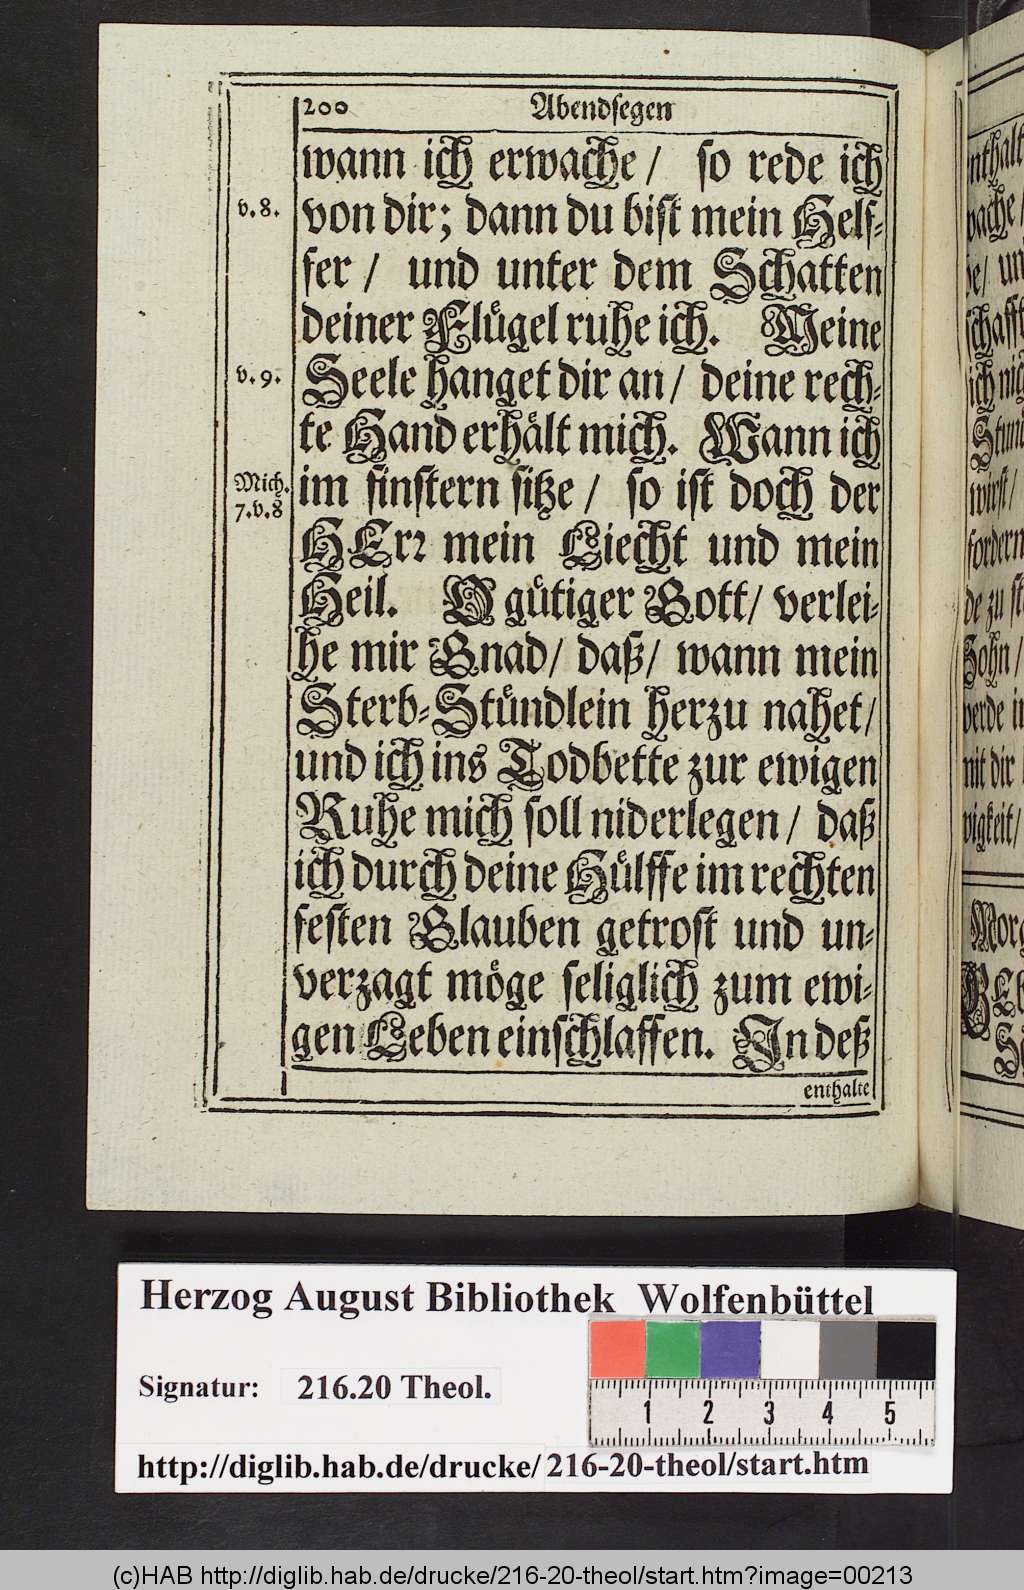 200 Abendſegen
wann ich erwache / ſo rede ich
v. 8. von dir; dann du biſt mein Helf-
fer / und unter dem Schatten
deiner Flügel ruhe ich. Meine
v. 9. Seele hanget dir an / deine rech-
te Hand erhält mich. Wann ich
Mich. 7. v. 8 im finſtern ſitze / ſo iſt doch der
HErꝛ mein Liecht und mein
Heil. O gütiger Gott / verlei-
he mir Gnad / daß / wann mein
Sterb-Stündlein herzu nahet /
und ich ins Todbette zur ewigen
Ruhe mich ſoll niderlegen / daß
ich durch deine Hülffe im rechten
feſten Glauben getroſt und un-
verzagt möge ſeliglich zum ewi-
gen Leben einſchlaffen. In deß
enthalte
Herzog August Bibliothek Wolfenbüttel
Signatur: 216.20 Theol.
1 2 3 4 5
http://diglib.hab.de/drucke/216-20-theol/start.htm
(c)HAB http://diglib.hab.de/drucke/216-20-theol/start.htm?image=00213